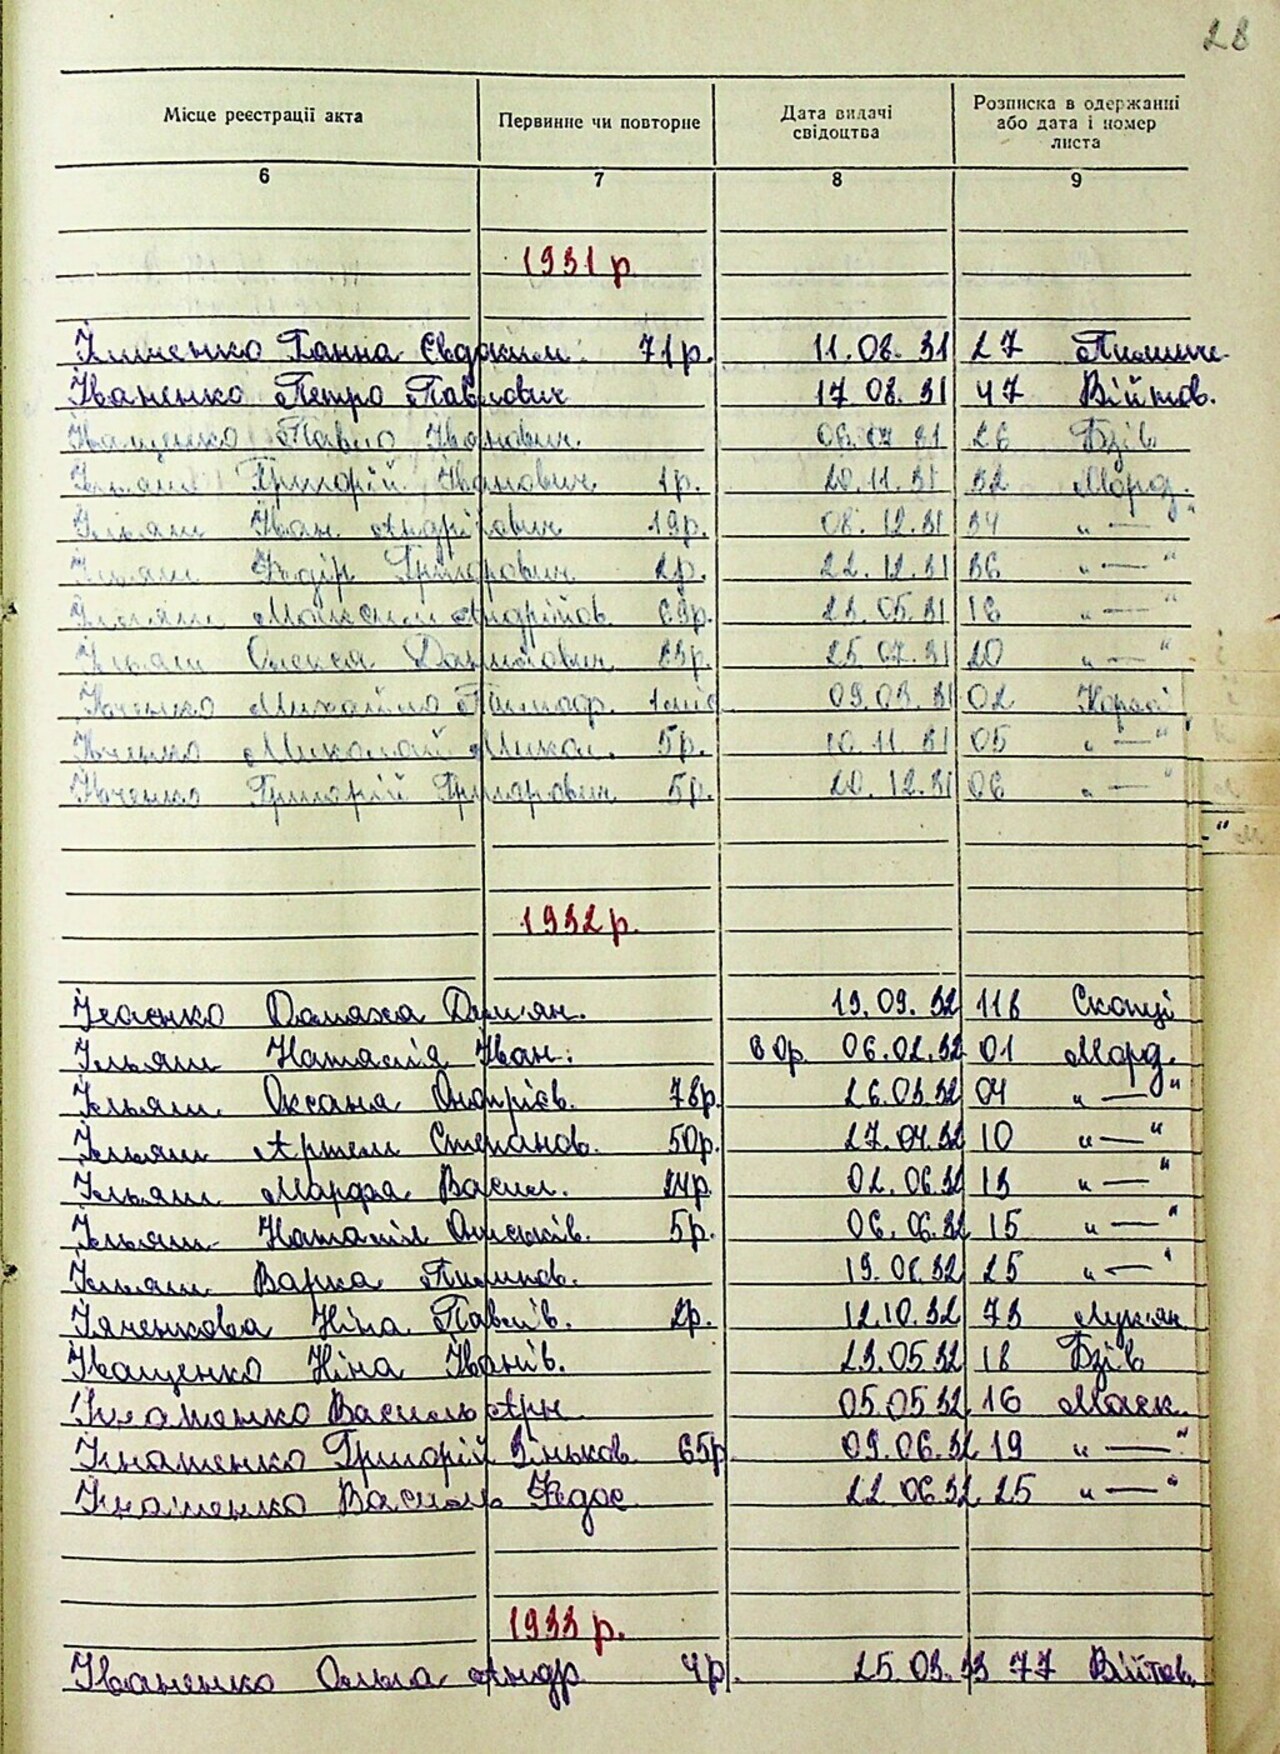 28
Місце реєстрації акта Первинне чи повторне Дата видачі свідоцтва Розписка в одержанні або дата і номер листа
6 7 8 9
1931 р.
Ганна Євдоким. 71р. 11.08.31 27
Іваненко Петро Павлович 17.08.31 47 Війтов.
Іващенко Павло Іванович. 06.07.31 26 Бзів
Ільяш Григорій Іванович 1р. 20.11.31 32 Морд.
Ільяш Іван Андрійович 19р. 08.12.31 34 „—“
Ільяш Федір Григорович 2р. 22.12.31 36 „—“
Ільяш Максим Андрійов. 69р. 23.05.31 „—“
Ільяш Олекса Данилович 25.07.31 20 „—“
Івченко Михайло 1міс. 09.03.31 02
Івченко Миколай Микол. 5р. 10.11.31 05 „—“
Івченко Григорій Григорович 5р. 20.12.31 06 „—“
1932 р.
Ісаєнко Домаха Дем'ян. 19.09.32 118 Скопці
Ільяш Наталія Іван. 06.02.32 01 Морд.
Ільяш Оксана Онопрієв. 78р. 26.03.32 04 „—“
Ільяш Артем Степанов. 50р. 27.04.32 10 „—“
Ільяш Марфа Васил. 24р. 02.06.32 13 „—“
Ільяш Наталія Олексіїв. 5р. 06.06.32 15 „—“
Ільяш Варка Пилипов. 32 25 „—“
Яченкова Ніна Павлів. 2р. 12.10.32 73 Лук'ян.
Іващенко Ніна Іванів. 23.05.32 18 Бзів
Ігнатенко Василь 05.05.32 16 Маск.
Ігнатенко Григорій Зіньков. 65р. 09.06.32 19 „—“
Ігнатенко Василь Федос. 22.06.32 25 „—“
1933 р.
Іваненко Ольга Андр. 4р. 25.03.33 77 Війтов.